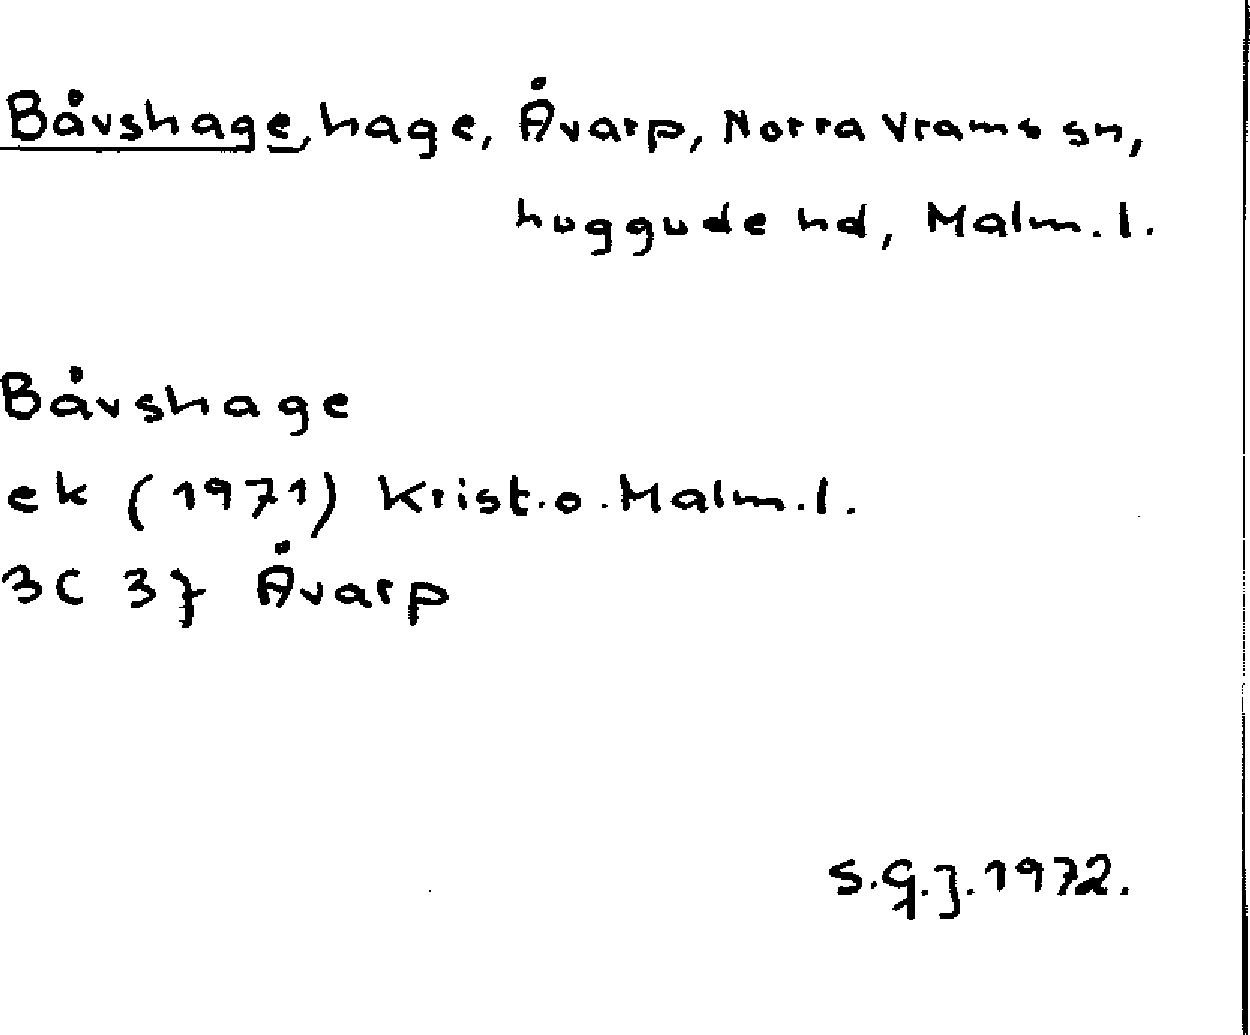 Båvshage, hage, Åvarp, Norra Vrams sn,
huggude hd, Malm. l.
Båvshage
ek (1971) Krist. o. Malm. l.
3C 3f Åvarp
S.G.J. 1972.